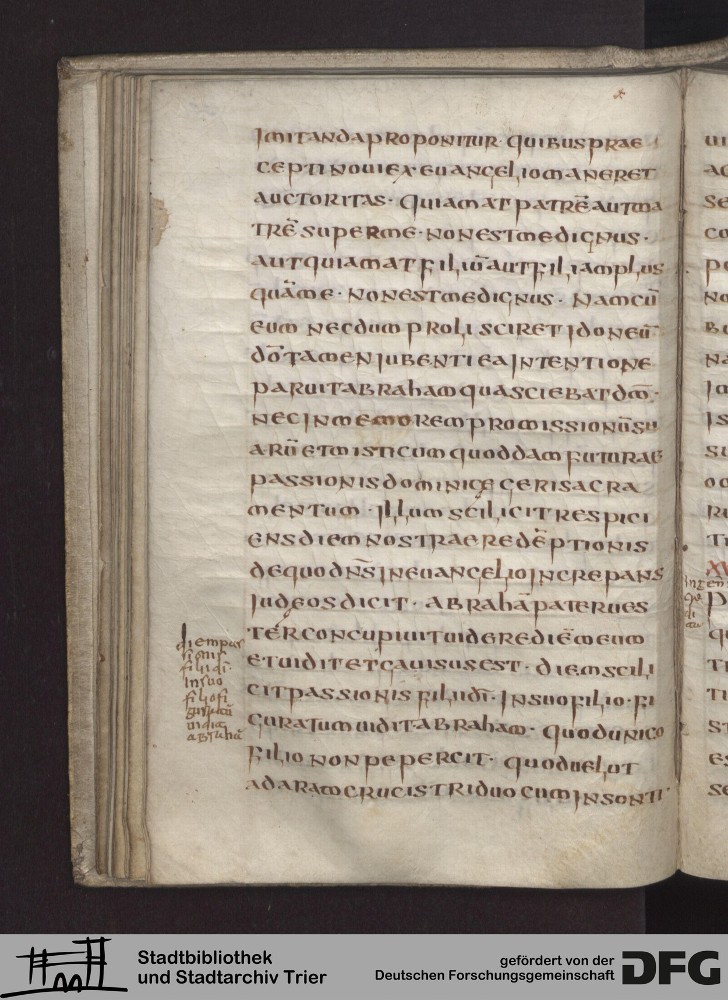 IMITANDAPROPONITUR· QUIBUSPRAE
CEPTINOUIEXEUANGELIOMANERET
AUCTORITAS· QUIAMAT PATRĒAUTMA
TRĒSUPERME· NONESTMEDIGNUS·
AUTQUIAMATFILIŪAUTFILIAMPLUS
QUĀME· NONESTMEDIGNUS· NAMCŪ
EUM NECDUMPROLISCIRETIDONEŪ
DŌTAMENIUBENTIEAINTENTIONE
PARUITABRAHAMQUASCIEBATDM̄·
NECINMEMOREMPROMISSIONŪSU
ARŪETMISTICUMQUODDAMFUTURAE
PASSIONISDOMINICĘGERISACRA
MENTUM· ILLUMSCILICITRESPICI
ENSDIEMNOSTRAEREDĒPTIONIS
DEQUODN̄SINEUANGELIOINCREPANS
IUDEOSDICIT· ABRAHĀPATERUES
TERCONCUPIUITUIDEREDIĒMEUM
ETUIDITETGAUISUSEST· DIEMSCILI
CITPASSIONISFILIIDĪ· INSUOFILIO·FI
GURATUMUIDITABRAHAM· QUODUNICO
FILIONONPEPERCIT· QUODUELUT
ADARAMCRUCISTRIDUOCUMINSONTI
diempas
sionis
filiidī
insuo
filiofi
guratū
uidit
abrahā
XV
Stadtbibliothek
und Stadtarchiv Trier
gefördert von der
Deutschen Forschungsgemeinschaft
DFG